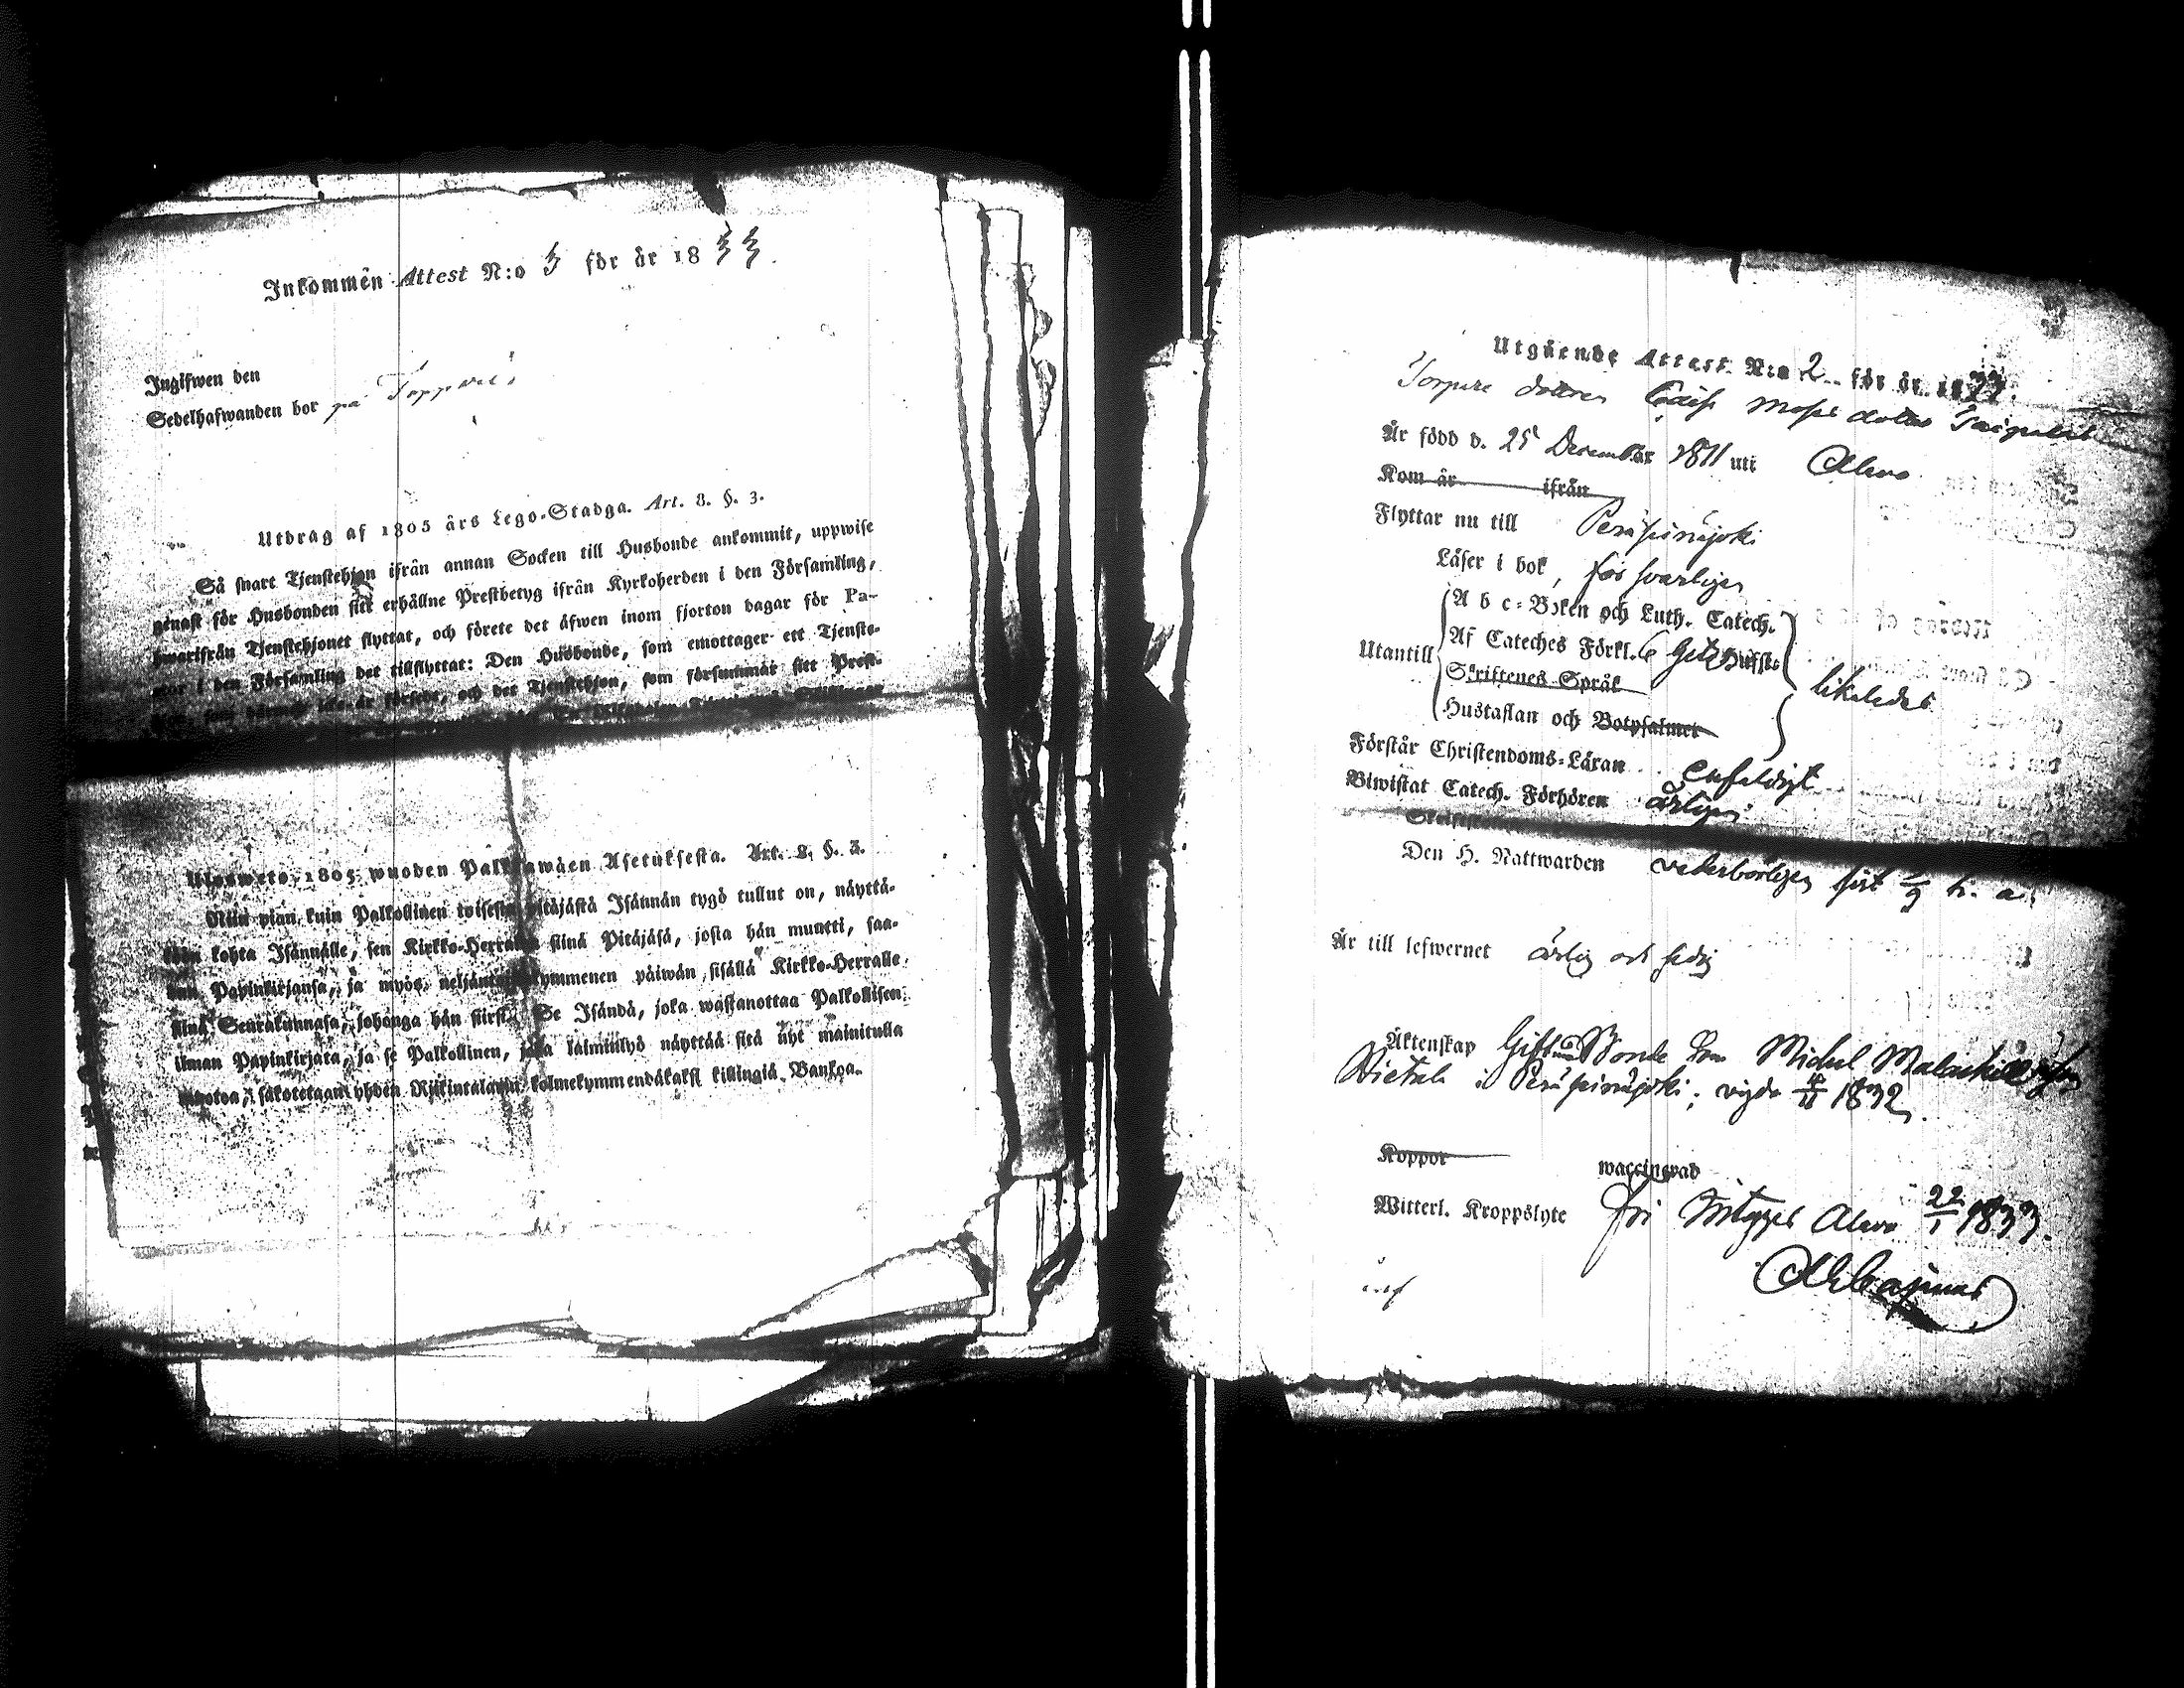 Inkommen Attest N:o 3 för år 1833.
Ingifwen den
Sedelhafwanden bor på
Utdrag af 1805 års Lego-Stadga. Art. 8. §. 3.
Så snart Tjenstehjon ifrån annan Socken till Husbonde ankommit, uppwise
genast för Husbonden sitt erhållne Prestbetyg ifrån Kyrkoherden i den Församling,
hwarifrån Tjenstehjonet flyttat, och förete det äfwen inom fjorton dagar för Pa-
stor i den Församling det tillflyttat: Den Husbonde, som emottager ett Tjenste-
och det Tjenstehjon, som försummar sitt Prest-
Ulosweto 1805 wuoden Palkkawäen Asetuksesta. Art. 8. §. 3.
Niin pian kuin Palkollinen toisesta pitäjästä Isännän tygö tullut on, näyttä-
köön kohta Isännälle, sen Kirkko-Herralta siinä Pitäjäsä, josta hän muutti, saa-
dun Papinkirjansa, ja myös neljäntoistakymmenen päiwän sisällä Kirkko-Herralle
siinä Seurakunnasa, johonga hän siirsi. Se Isändä, joka wastanottaa Palkollisen
ilman Papinkirjata, ja se Palkollinen, joka laiminlyö näyttää sitä nyt mainitulla
muotoa, sakotetaan yhden Riikintalarin kolmekymmendäkaksi killingiä Bankoa.
Utgående Attest N:o 2 för år 1833.
dottren Mats dotter
Är född d. 25 December 1811 uti Alavo
Kom år ifrån
Flyttar nu till Peräseinäjoki
Läser i bok, försvarligen
Utantill
A b c-Boken och Luth. Catech.
Af Cateches Förkl. 6 Hufst.
Skriftenes Språk
Hustaflan och Botpsalmer
likaledes
Förstår Christendoms-Läran enfaldigt
Biwistat Catech. Förhören årligen
Den H. Nattwarden vederbörligen sist
Är till lefwernet ärlig och sedig
Äktenskap Gift med Bonde Son Michel
i Peräseinäjoki; vigde 1832.
Koppor waccinerad
Witterl. Kroppslyte fri Intygar Alavo 22/1 1833.